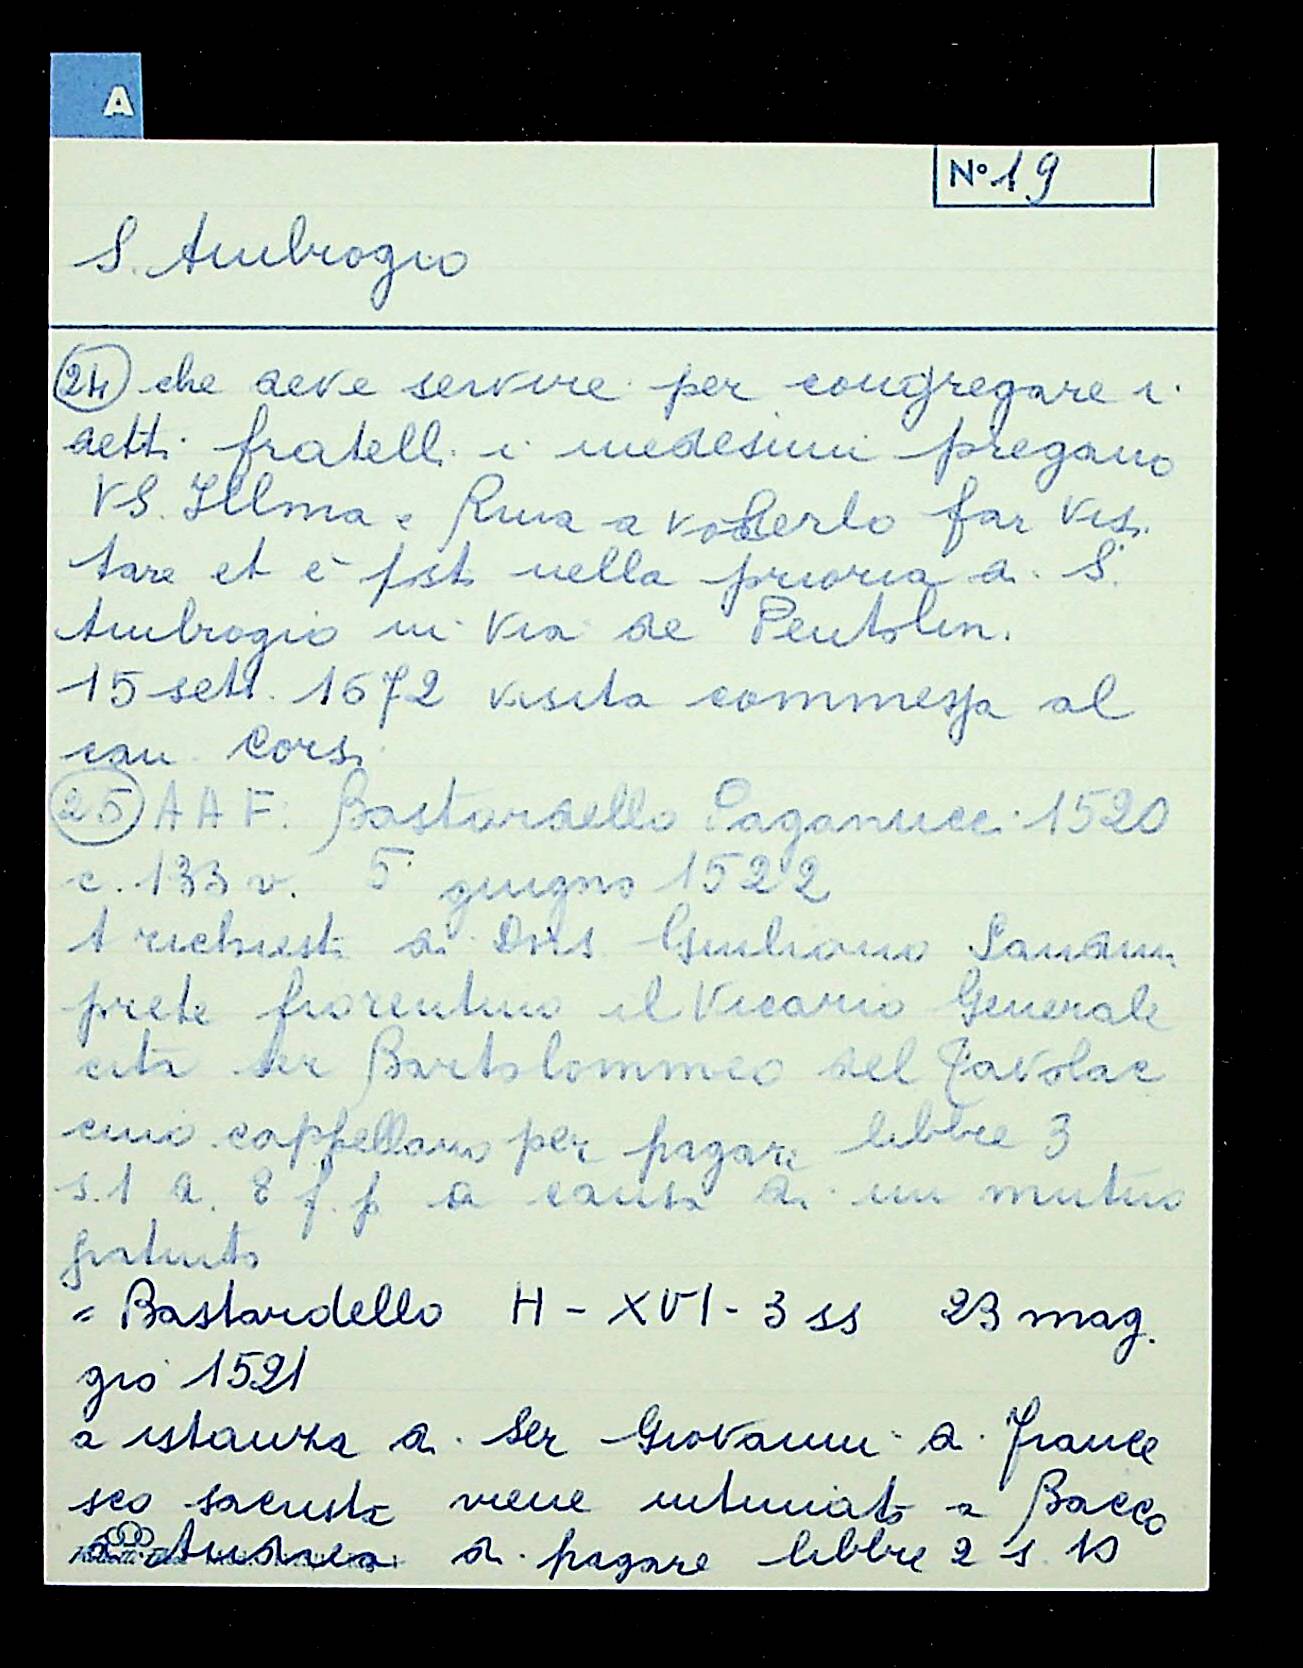 A
N° 19
S. Ambrogio
24 che deve servire per congregare i
detti fratelli i medesimi pregano
VS. Illma e Rma a volerlo far visi
tare et è posto nella prioria di S.
Ambrogio in Via de Pentolini
15 sett. 1672 visita commessa al
can. Corsi
25 AAF. Bastardello Paganucci 1520
c. 133 v. 5 giugno 1522
A richiesta di Dns Giuliano
prete fiorentino il Vicario Generale
cita ser Bartolommeo del Tavolac
cino cappellano per pagare libbre 3
s. 1 d. 8 f. p. a causa di un mutuo
gratuito
= Bastardello H - XVI - 3 ss 23 mag.
gio 1521
a istanza di Ser Giovanni di France
sco sacrista viene intimato a Bacco
di Andrea di pagare libbre 2 s. 10